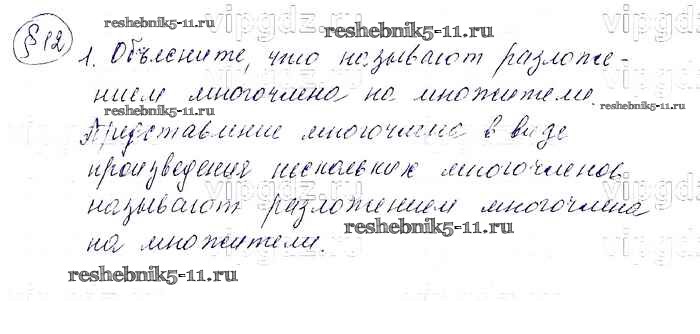 reshebnik5-11.ru
vipgdz.ru
reshebnik5-11.ru
§12
1. Объясните, что называют разложе-
нием многочлена на множители.
reshebnik5-11.ru
reshebnik5-11.ru
Представление многочлена в виде
произведения нескольких многочленов
vipgdz.ru
называют разложением многочлена
reshebnik5-11.ru
на множители.
reshebnik5-11.ru